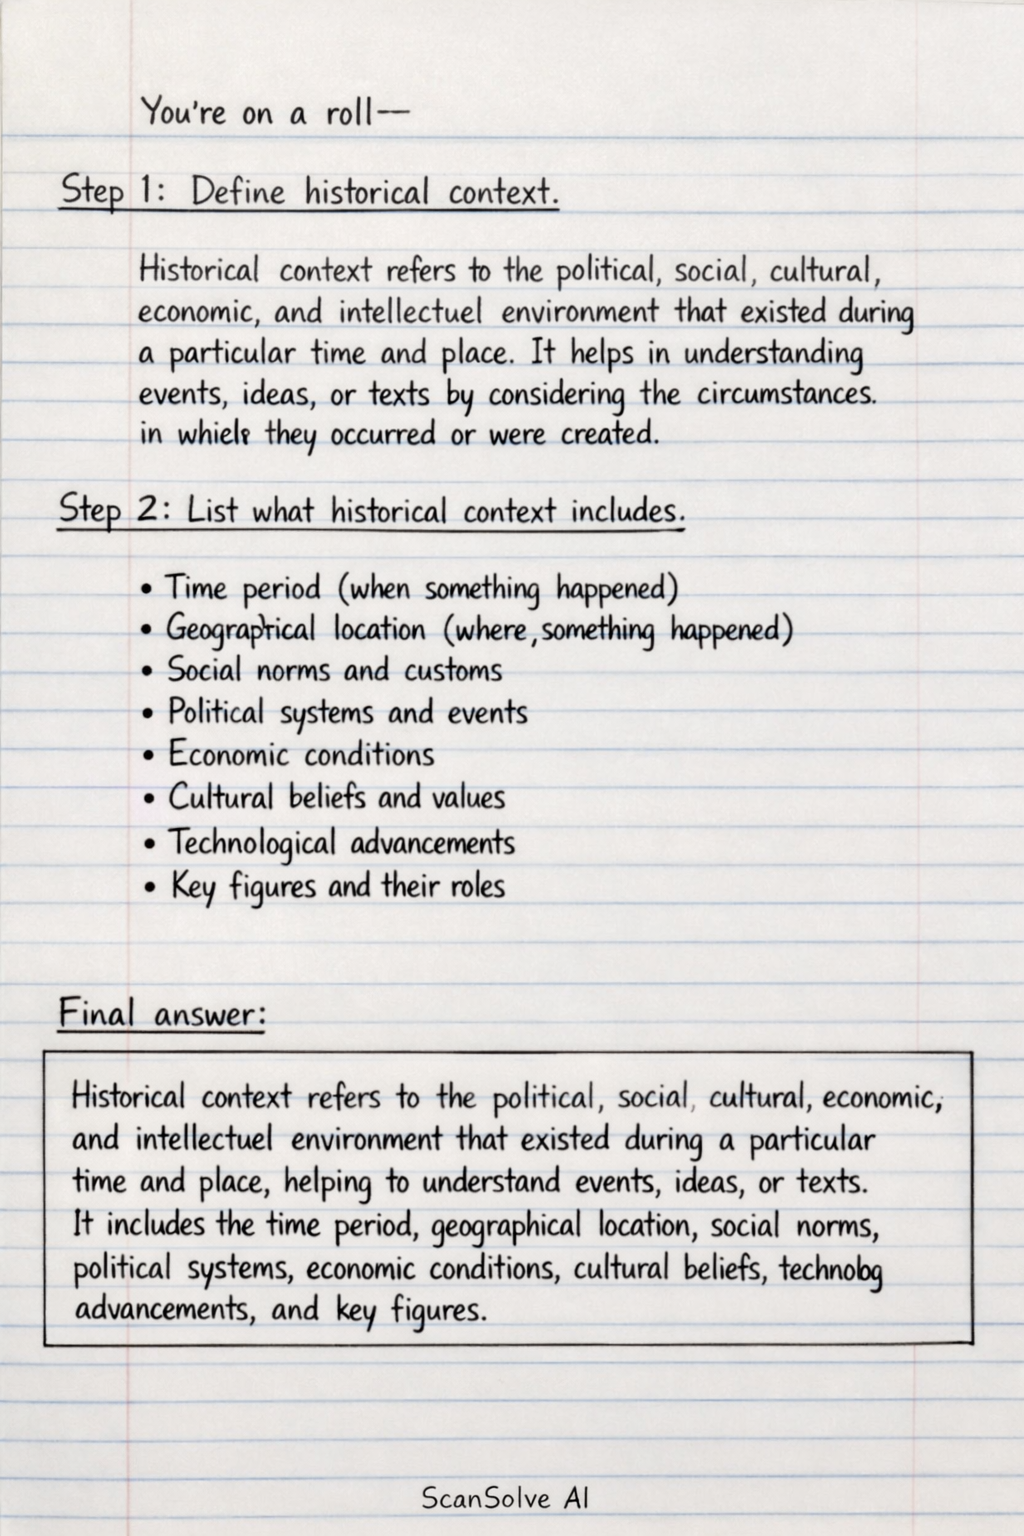 You're on a roll—
Step 1: Define historical context.
Historical context refers to the political, social, cultural,
economic, and intellectuel environment that existed during
a particular time and place. It helps in understanding
events, ideas, or texts by considering the circumstances.
in they occurred or were created.
Step 2: List what historical context includes.
• Time period (when something happened)
• location (where, something happened)
• Social norms and customs
• Political systems and events
• Economic conditions
• Cultural beliefs and values
• Technological advancements
• Key figures and their roles
Final answer:
Historical context refers to the political, social, cultural, economic,
and intellectuel environment that existed during a particular
time and place, helping to understand events, ideas, or texts.
It includes the time period, geographical location, social norms,
political systems, economic conditions, cultural beliefs,
advancements, and key figures.
ScanSolve AI